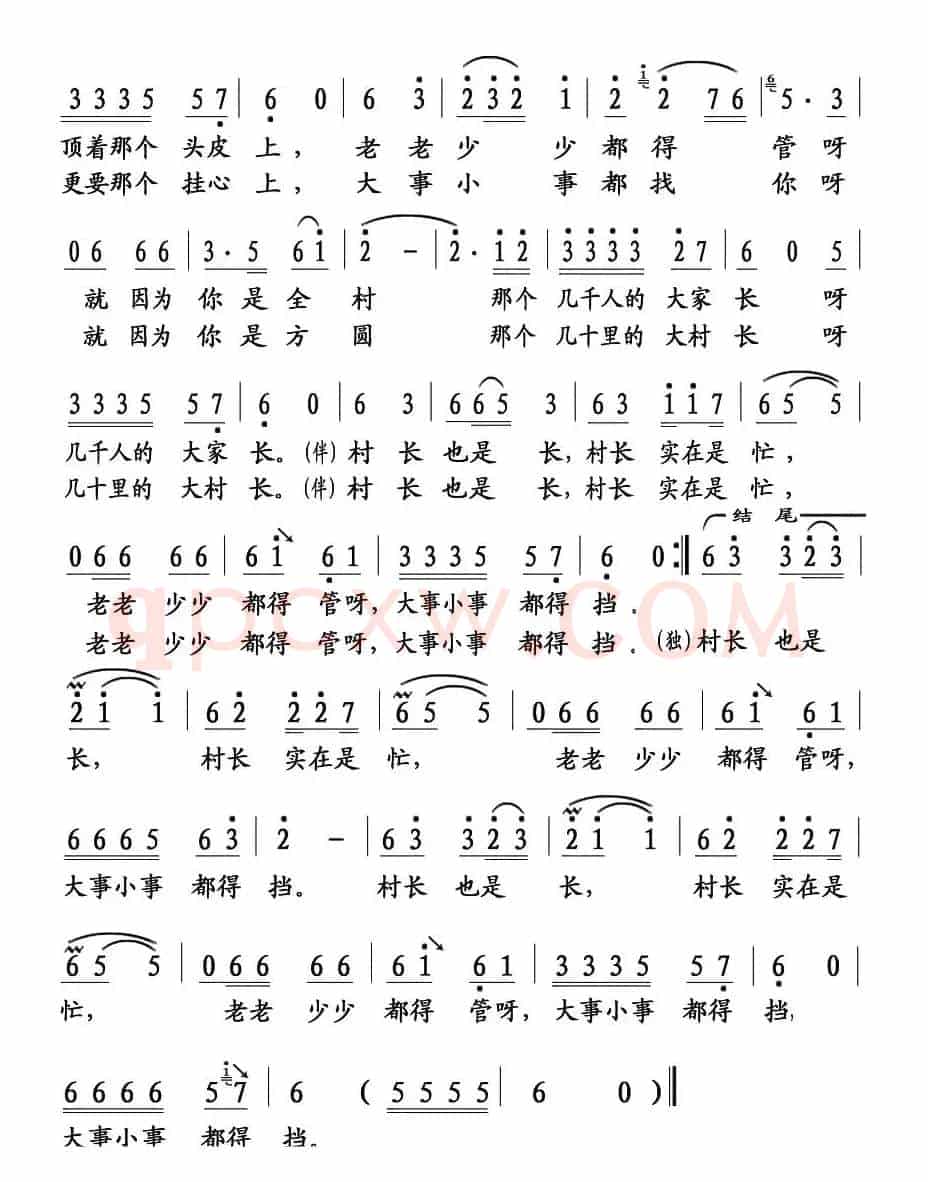 3 3 3 5 5 7 | 6 0 | 6 3 | 2 3 2 1 | 2 2 7 6 | 5 · 3
顶着那个 头皮 上， 老 老 少 少 都 得 管 呀
更要那个 挂心 上， 大 事 小 事 都 找 你 呀
0 6 6 6 | 3 · 5 6 1 | 2 － | 2 · 1 2 | 3 3 3 3 2 7 | 6 0 5
就 因为 你 是 全 村 那个 几千人的 大家 长 呀
就 因为 你 是 方 圆 那个 几十里的 大村 长 呀
3 3 3 5 5 7 | 6 0 | 6 3 | 6 6 5 3 | 6 3 1 1 7 | 6 5 5
几千人的 大家 长。（伴）村 长 也 是 长，村长 实在是 忙，
几十里的 大村 长。（伴）村 长 也 是 长，村长 实在是 忙，
结 尾
0 6 6 6 6 | 6 1 6 1 | 3 3 3 5 5 7 | 6 0 :‖ 6 3 3 2 3
老老 少少 都得 管呀，大事小事 都得 挡．
老老 少少 都得 管呀，大事小事 都得 挡．（独）村长 也是
qpcxw.COM
2 1 1 | 6 2 2 2 7 | 6 5 5 | 0 6 6 6 6 | 6 1 6 1
长， 村长 实在是 忙， 老老 少少 都得 管呀，
6 6 6 5 6 3 | 2 － | 6 3 3 2 3 | 2 1 1 | 6 2 2 2 7
大事小事 都得 挡。 村长 也是 长， 村长 实在是
6 5 5 | 0 6 6 6 6 | 6 1 6 1 | 3 3 3 5 5 7 | 6 0
忙， 老老 少少 都得 管呀，大事小事 都得 挡，
6 6 6 6 5 7 | 6 （ 5 5 5 5 | 6 0 ）‖
大事小事 都得 挡。